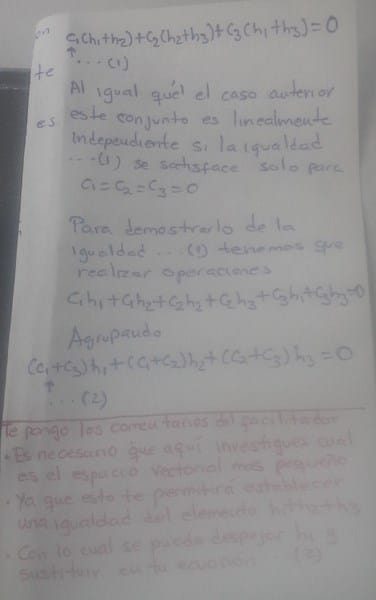 on c₁(h₁+h₂)+c₂(h₂+h₃)+c₃(h₁+h₃)=0
te ↑... (1)
Al igual qué el caso anterior
es este conjunto es linealmente
independiente si la igualdad
...(1) se satisface solo para
c₁=c₂=c₃=0
Para demostrarlo de la
igualdad ...(1) tenemos que
realizar operaciones
c₁h₁+c₁h₂+c₂h₂+c₂h₃+c₃h₁+c₃h₃=0
Agrupando
(c₁+c₃)h₁+(c₁+c₂)h₂+(c₂+c₃)h₃=0
↑
...(2)
Te pongo los comentarios del facilitador
• Es necesario que aquí investigues cual
es el espacio vectorial mas pequeño
• Ya que esto te permitirá establecer
una igualdad del elemento h₁+h₂+h₃
• Con lo cual se puede despejar h₁ y
sustituir en tu ecuación ..(2)